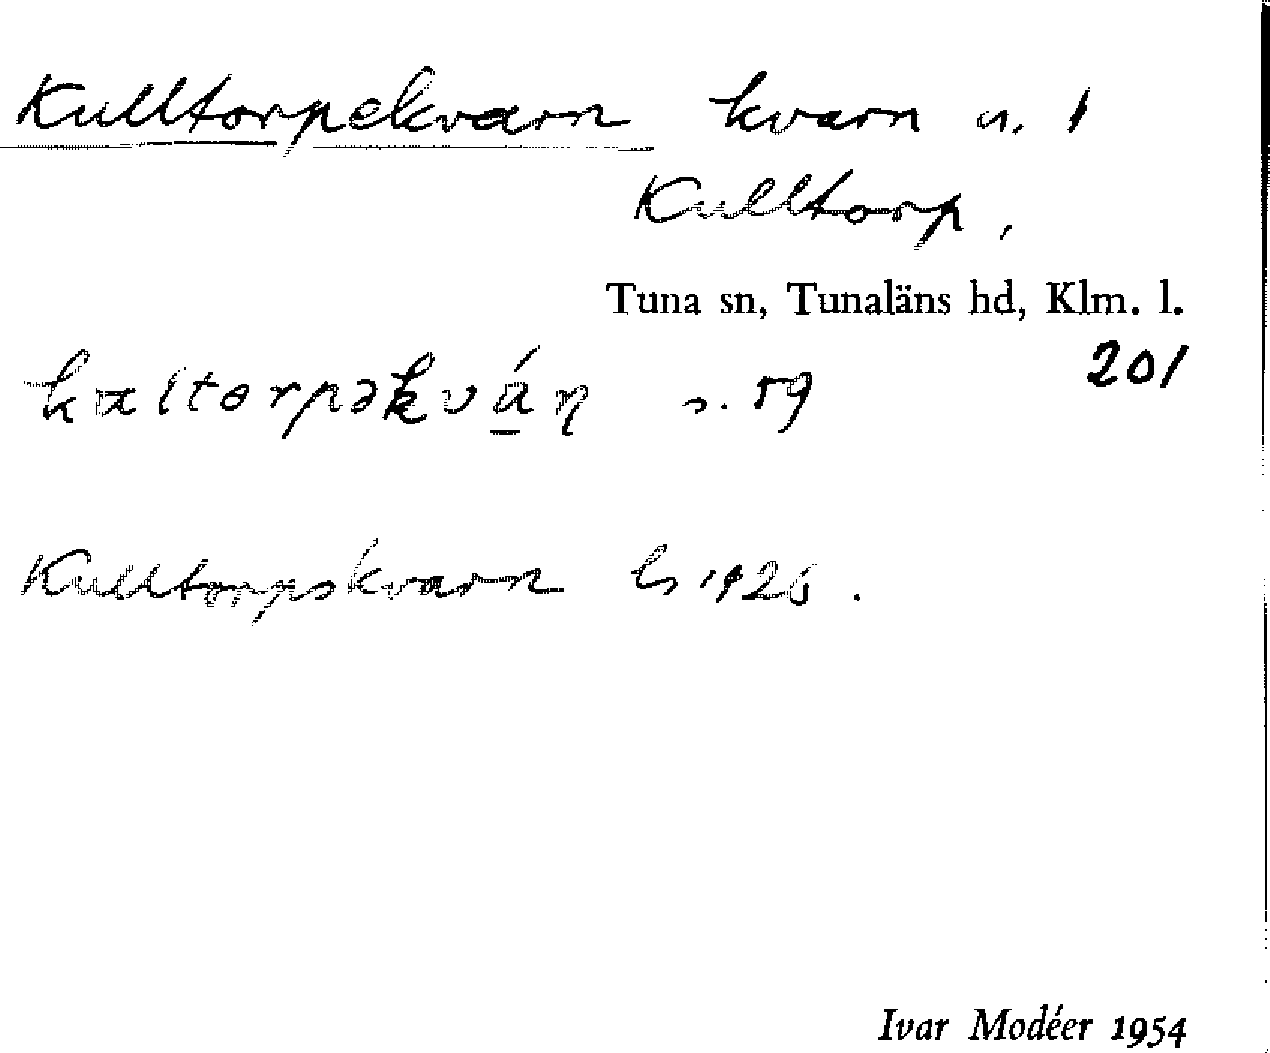 Kulltorpekvarn kvarn u. 1
Kulltorp,
Tuna sn, Tunaläns hd, Klm. l.
201
kæltorpəkván s. 59
Kulltorpskvarn ls 1926.
Ivar Modéer 1954